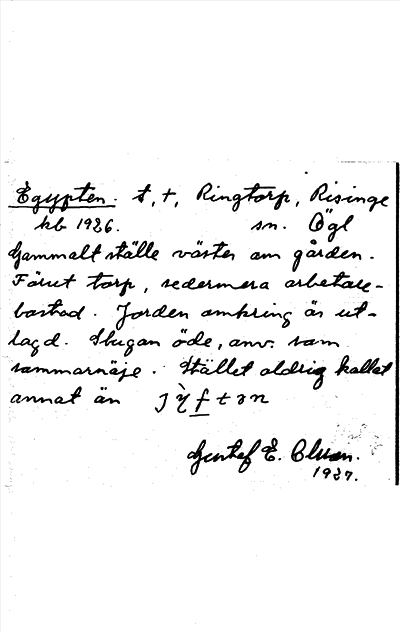 Egypten. t, +, Ringtorp, Risinge
kb 1926. sn. Ögl
Gammalt ställe väster om gården.
Förut torp, sedermera arbetare-
bostad. Jorden omkring är ut-
lagd. Stugan öde, anv. som
sommarnöje. Stället aldrig kallat
annat än
Gustaf E. Olsson.
1927.